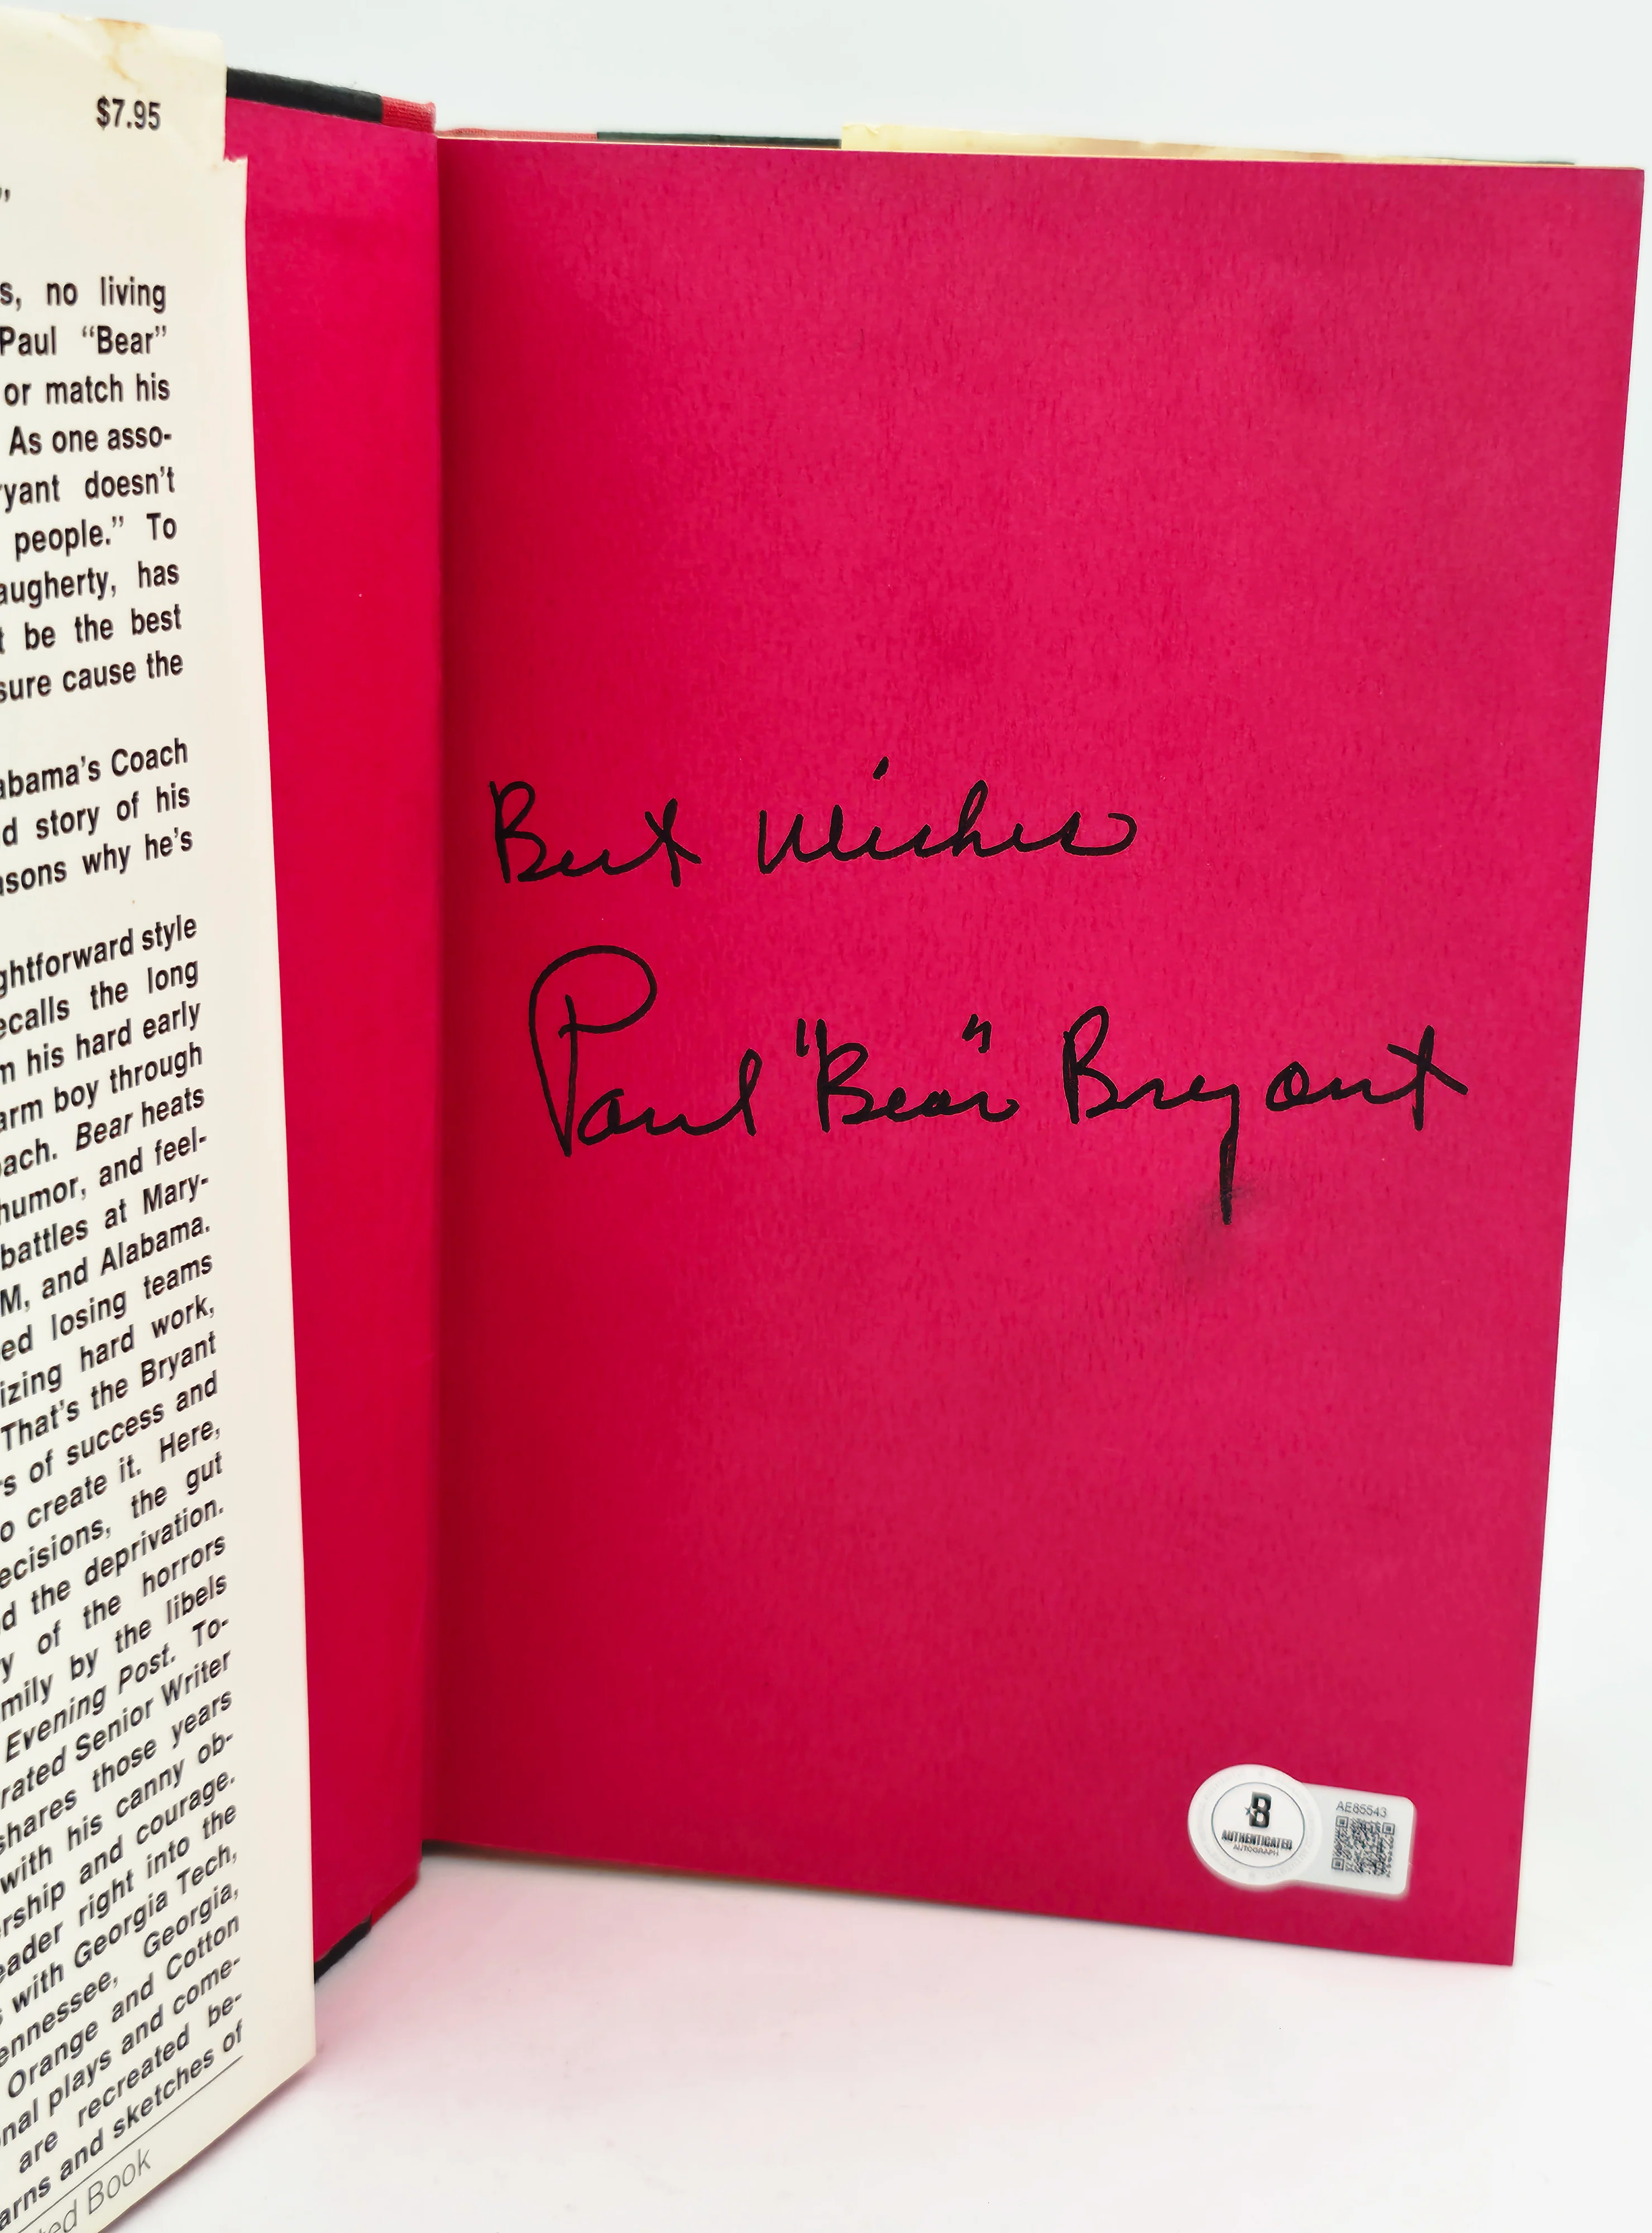 $7.95
”
s, no living
Paul “Bear”
or match his
As one asso-
ryant doesn't
people.” To
augherty, has
t be the best
sure cause the
abama's Coach
d story of his
asons why he's
ghtforward style
ecalls the long
m his hard early
arm boy through
oach. Bear heats
humor, and feel-
battles at Mary-
M, and Alabama.
ed losing teams
izing hard work,
That's the Bryant
rs of success and
o create it. Here,
ecisions, the gut
d the deprivation.
y of the horrors
mily by the libels
Evening Post. To-
rated Senior Writer
shares those years
with his canny ob-
ership and courage.
eader right into the
s with Georgia Tech,
ennessee, Georgia,
Orange and Cotton
nal plays and come-
are recreated be-
arns and sketches of
ted Book
Best Wishes
Paul "Bear" Bryant
B
AUTHENTICATED
AUTOGRAPH
AE85543